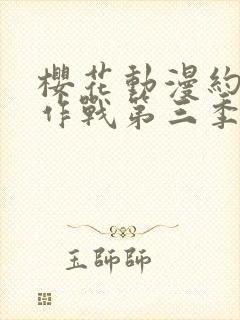 櫻花動漫約
作戰第三季
玉師師